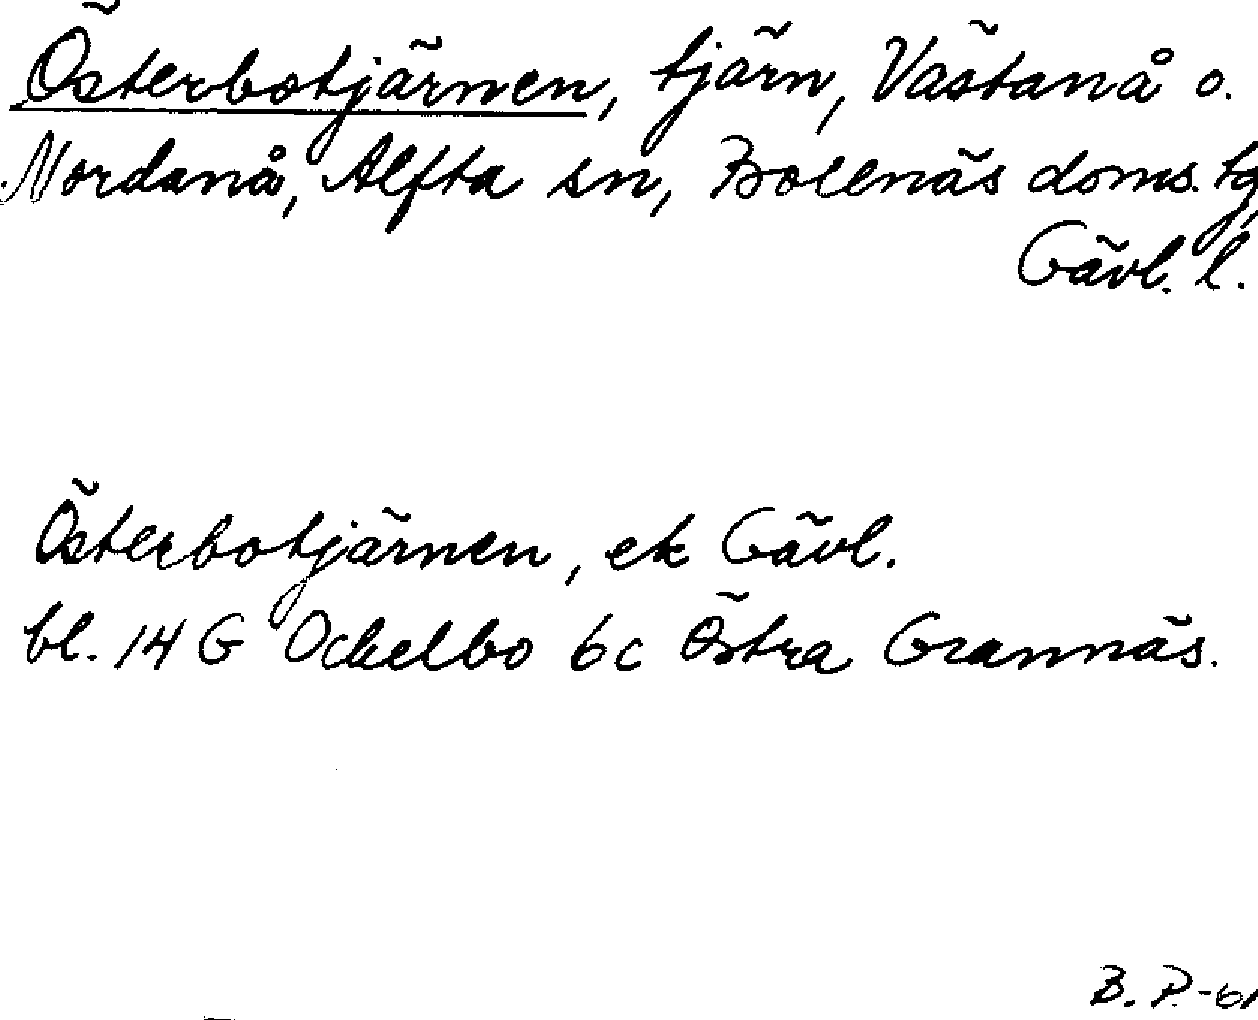 Österbotjärnen, tjärn, Västanå o.
Nordanå, Alfta sn, Bollnäs doms. tg,
Gävl. l.
Österbotjärnen, ek Gävl.
bl. 14 G Ockelbo 6c Östra Grannäs.
B. P. -61